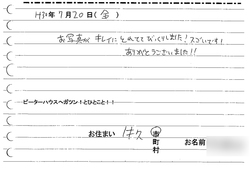 H30年7月20日(金)
お写真が キレイに とれてて びっくりしました! スゴいです!
ありがとうございました!!
ピーターハウスへガツン!とひとこと!!
お住まい 佐久 市 町 村 お名前